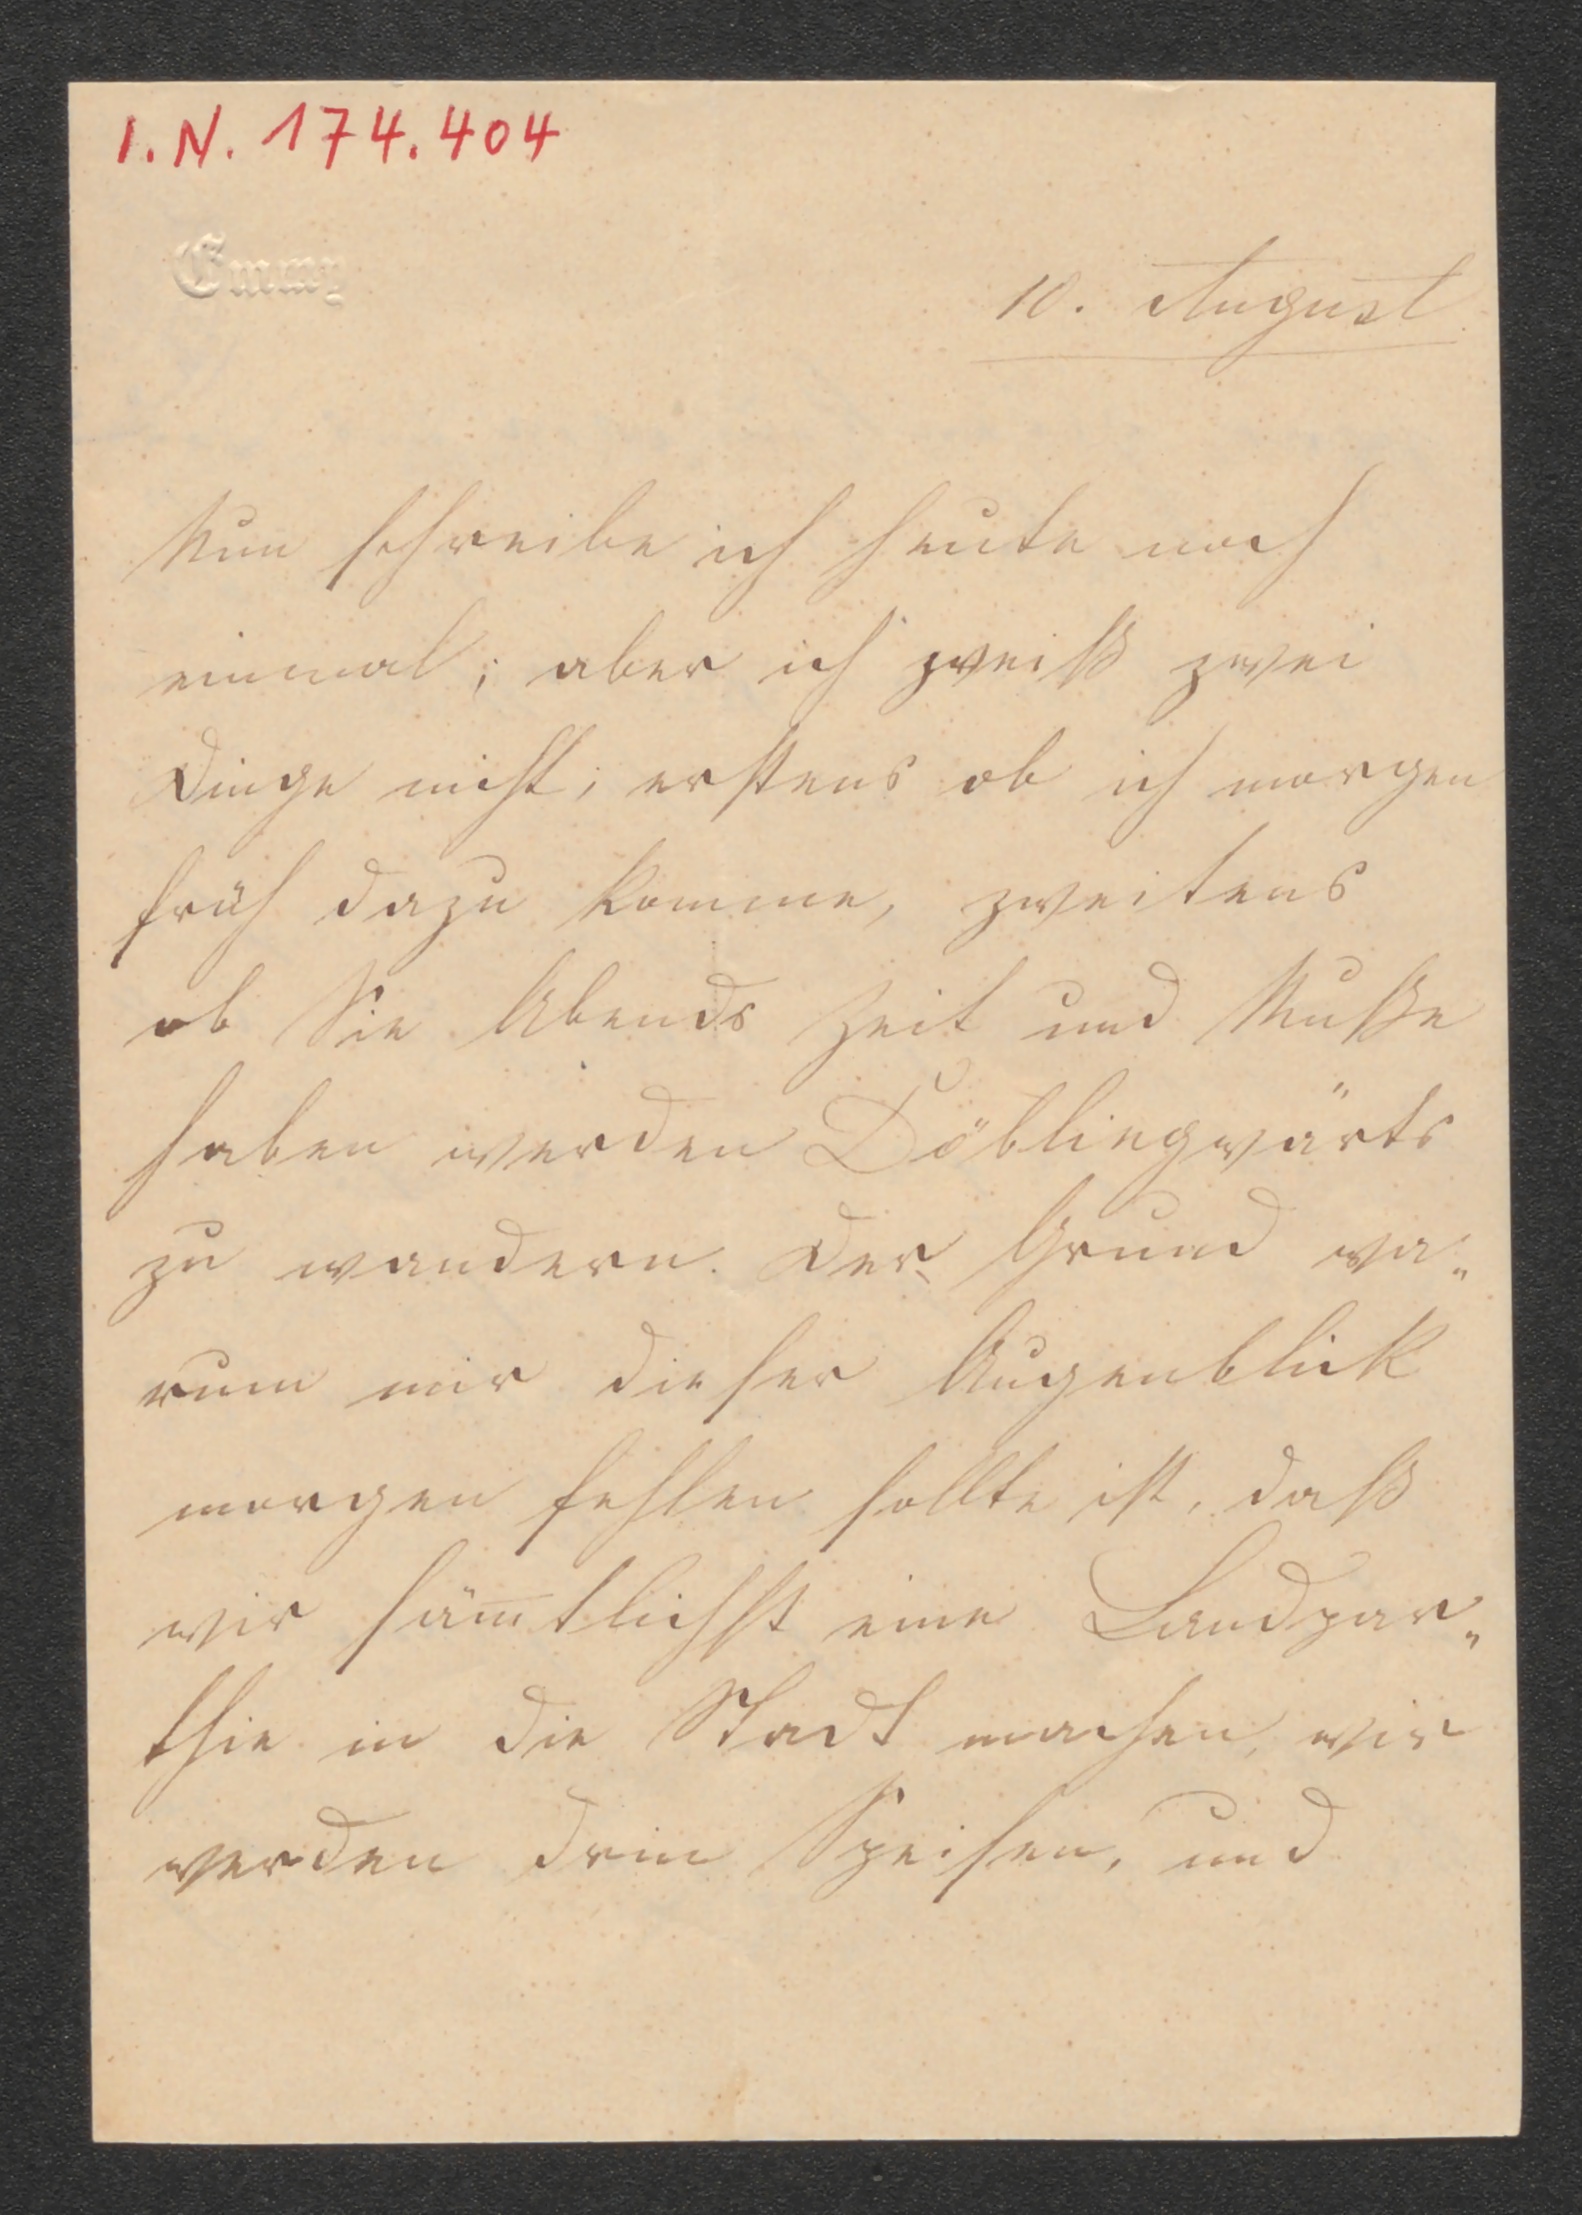 I.N. 174.404
Emmy
10. August
Nun schreibe ich heute noch
einmal; aber ich weiß zwei
Dinge nicht; erstens ob ich morgen
früh dazu komme, zweitens
ob Sie Abends Zeit und Muße
haben werden Döblingwärts
zu wandern. Der Grund wa„
rum mir dieser Augenblick
morgen fehlen sollte ist, daß
wir säm̅tlichst eine Landpar„
thie in die Stadt machen, wir
werden drin Speisen, und